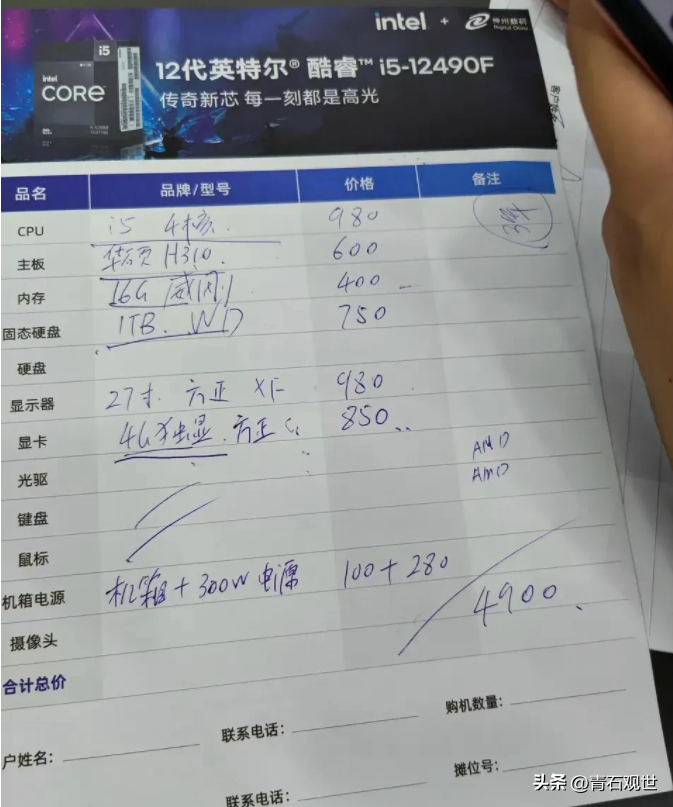 intel + 神州数码
Digital China
i5
intel
CORE
12代英特尔® 酷睿™ i5-12490F
传奇新芯 每一刻都是高光
品名 品牌/型号 价格 备注
CPU i5 4核. 980
主板 华硕 H310. 600
内存 16G 威刚 400
固态硬盘 1TB. WD 750
硬盘
显示器 27寸. 方正 XF 980
显卡 4G独显. 方正 850
光驱 AMD
AMD
键盘
鼠标
机箱电源 机箱+300W电源 100+280
4900.
摄像头
合计总价
户姓名: 联系电话: 购机数量:
联系电话: 摊位号:
头条 @青石观世